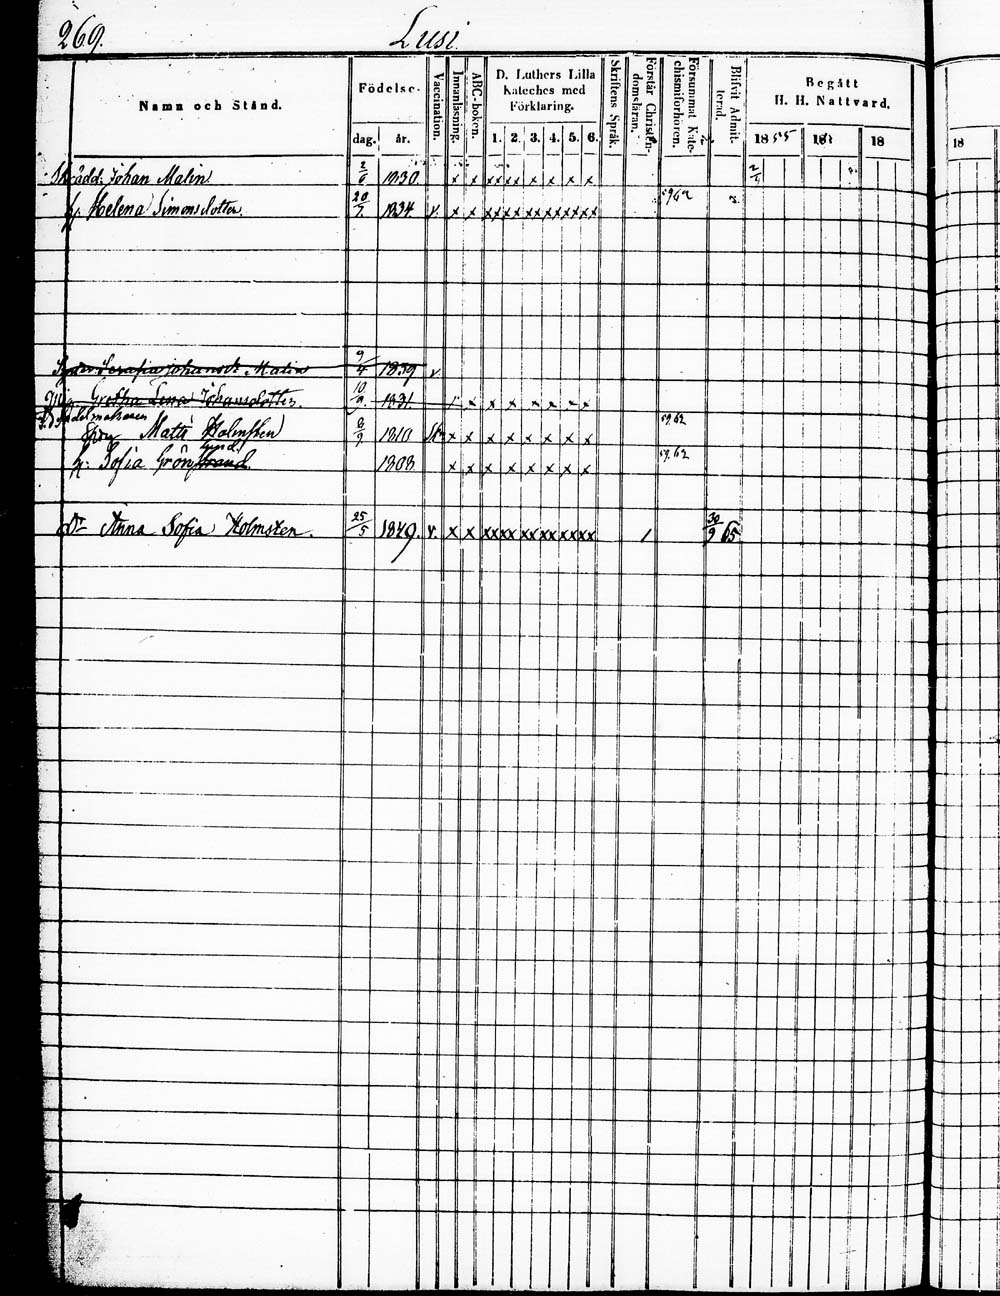 269. Lusi
Namn och Stånd. Födelse- dag. år. Vaccination. Innanläsning. ABC-boken. D. Luthers Lilla Kateches med Förklaring. 1. 2. 3. 4. 5. 6. Skriftens Språk. Förstår Christendomsläran. Försummat Katechismiförhören. Blifvit Admitterad. Begått H. H. Nattvard. 1855 18 18 18
Skrädd: Johan Malin 2/6 1830. x x xx xx x x x x 2/4
h: Helena Simonsdotter. 20/7 1834 v. x x xx xx xx xx xx xx 59 62
Serafia Johansdr Malin 9/4 1839 v
Gretha Lena Johansdotter. 10/9. 1831. x x x x x x x
Sadelmakaren
Matti Holmsten 8/9 1810 x x x x x x x x 59. 62
lund
h: Sofia Grönstrand 1808 x x x x x x x x 59. 62
Dr Anna Sofia Holmsten. 25/5 1849. v. x x xx xx xx xx xx xx / 30/9 65